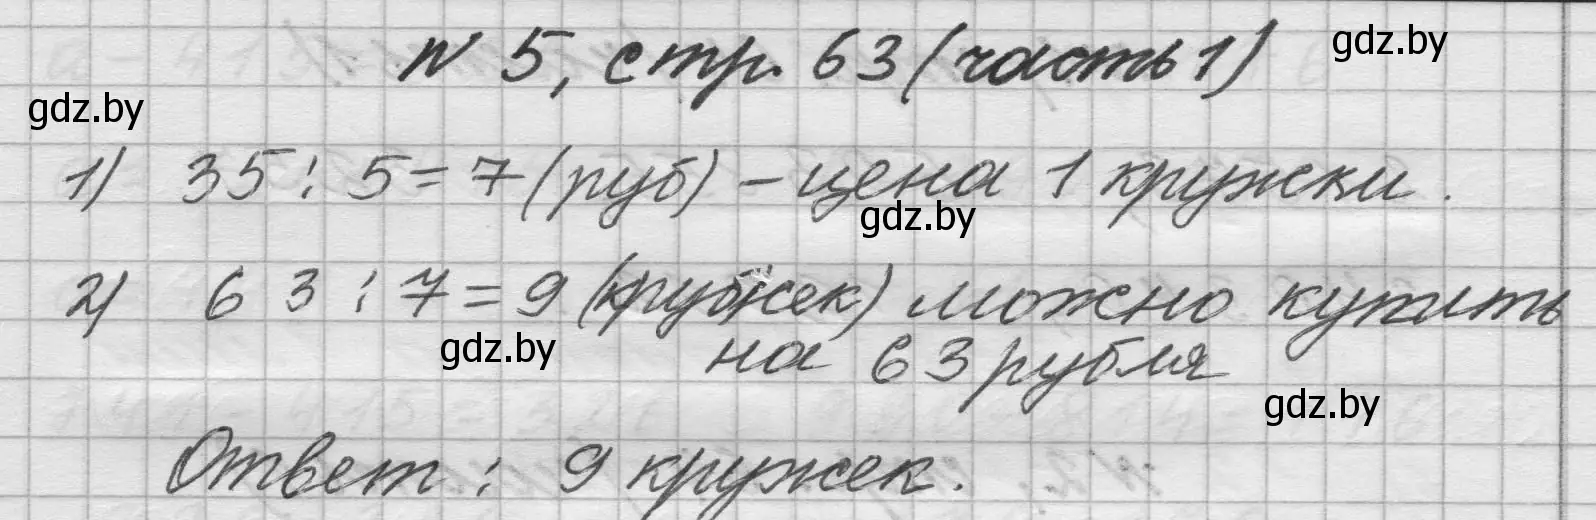 N 5, стр. 63 (часть 1)
gdz.by
gdz.by
1) 35 : 5 = 7 (руб) – цена 1 кружки.
gdz.by
2) 63 : 7 = 9 (кружек) можно купить
на 63 рубля
gdz.by
gdz.by
Ответ : 9 кружек.